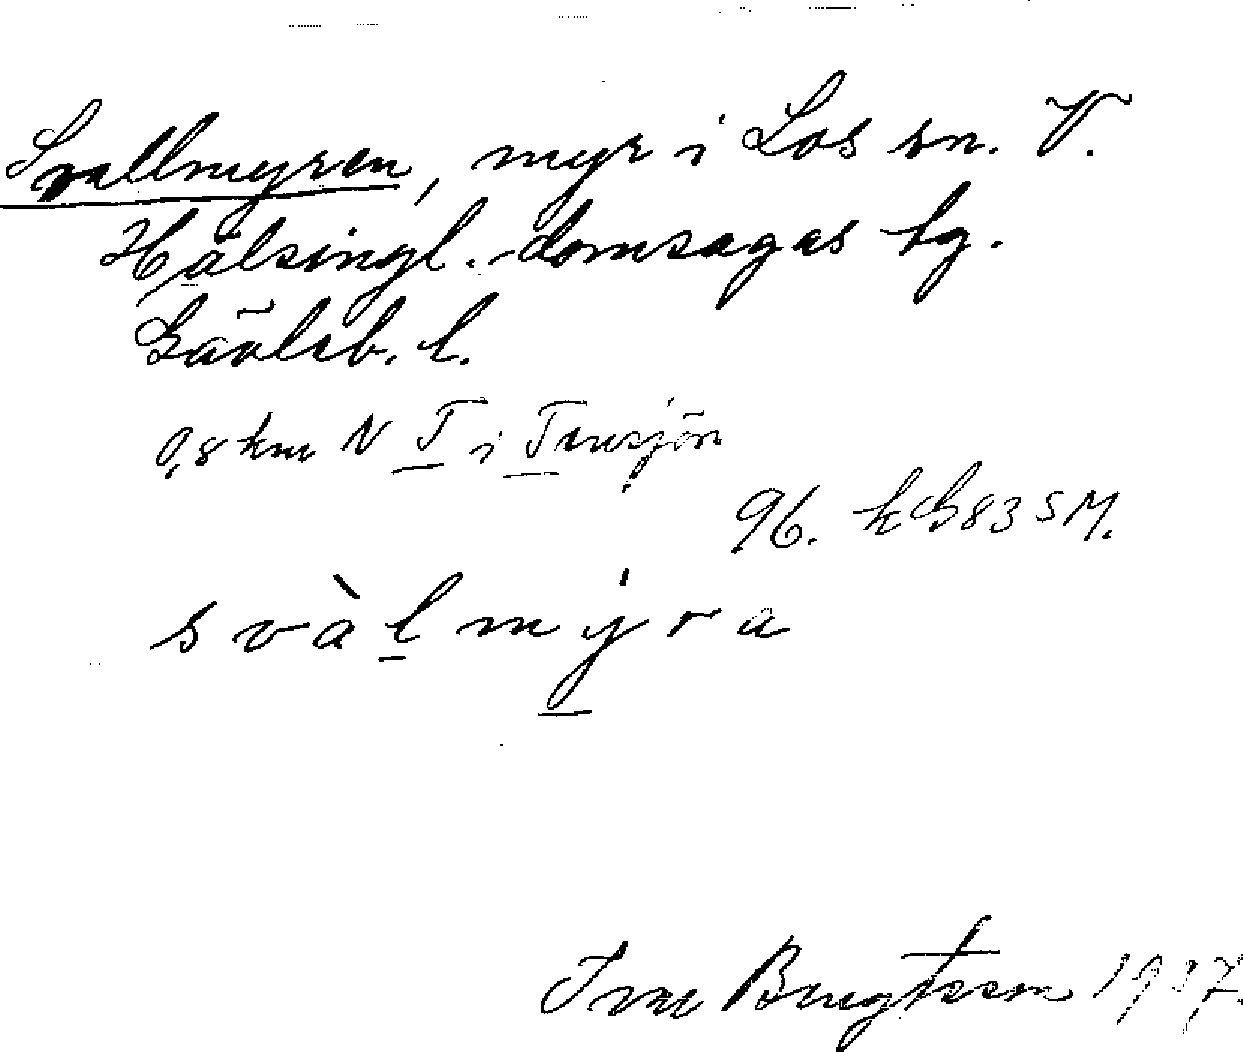 Svallmyren, myr i Los sn. V.
Hälsingl. domsagas tg.
Gävleb. l.
0,8 km N T i Tensjön
96. kG83 SM.
svàlmyra
Bengtsson 1937.